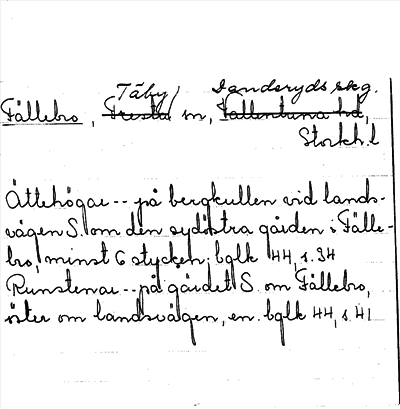 Täby Danderyds skg.
Fällebro, Fresta sn, Vallentuna hd,
Stockh. l
Ättehögar -- på bergkullen vid lands-
vägen S. om den sydöstra gården i Fälle-
bro, minst 6 stycken; bglk 44, s. 34
Runstenar -- på gärdet S om Fällebro,
öster om landsvägen, en. bglk 44, s. 41